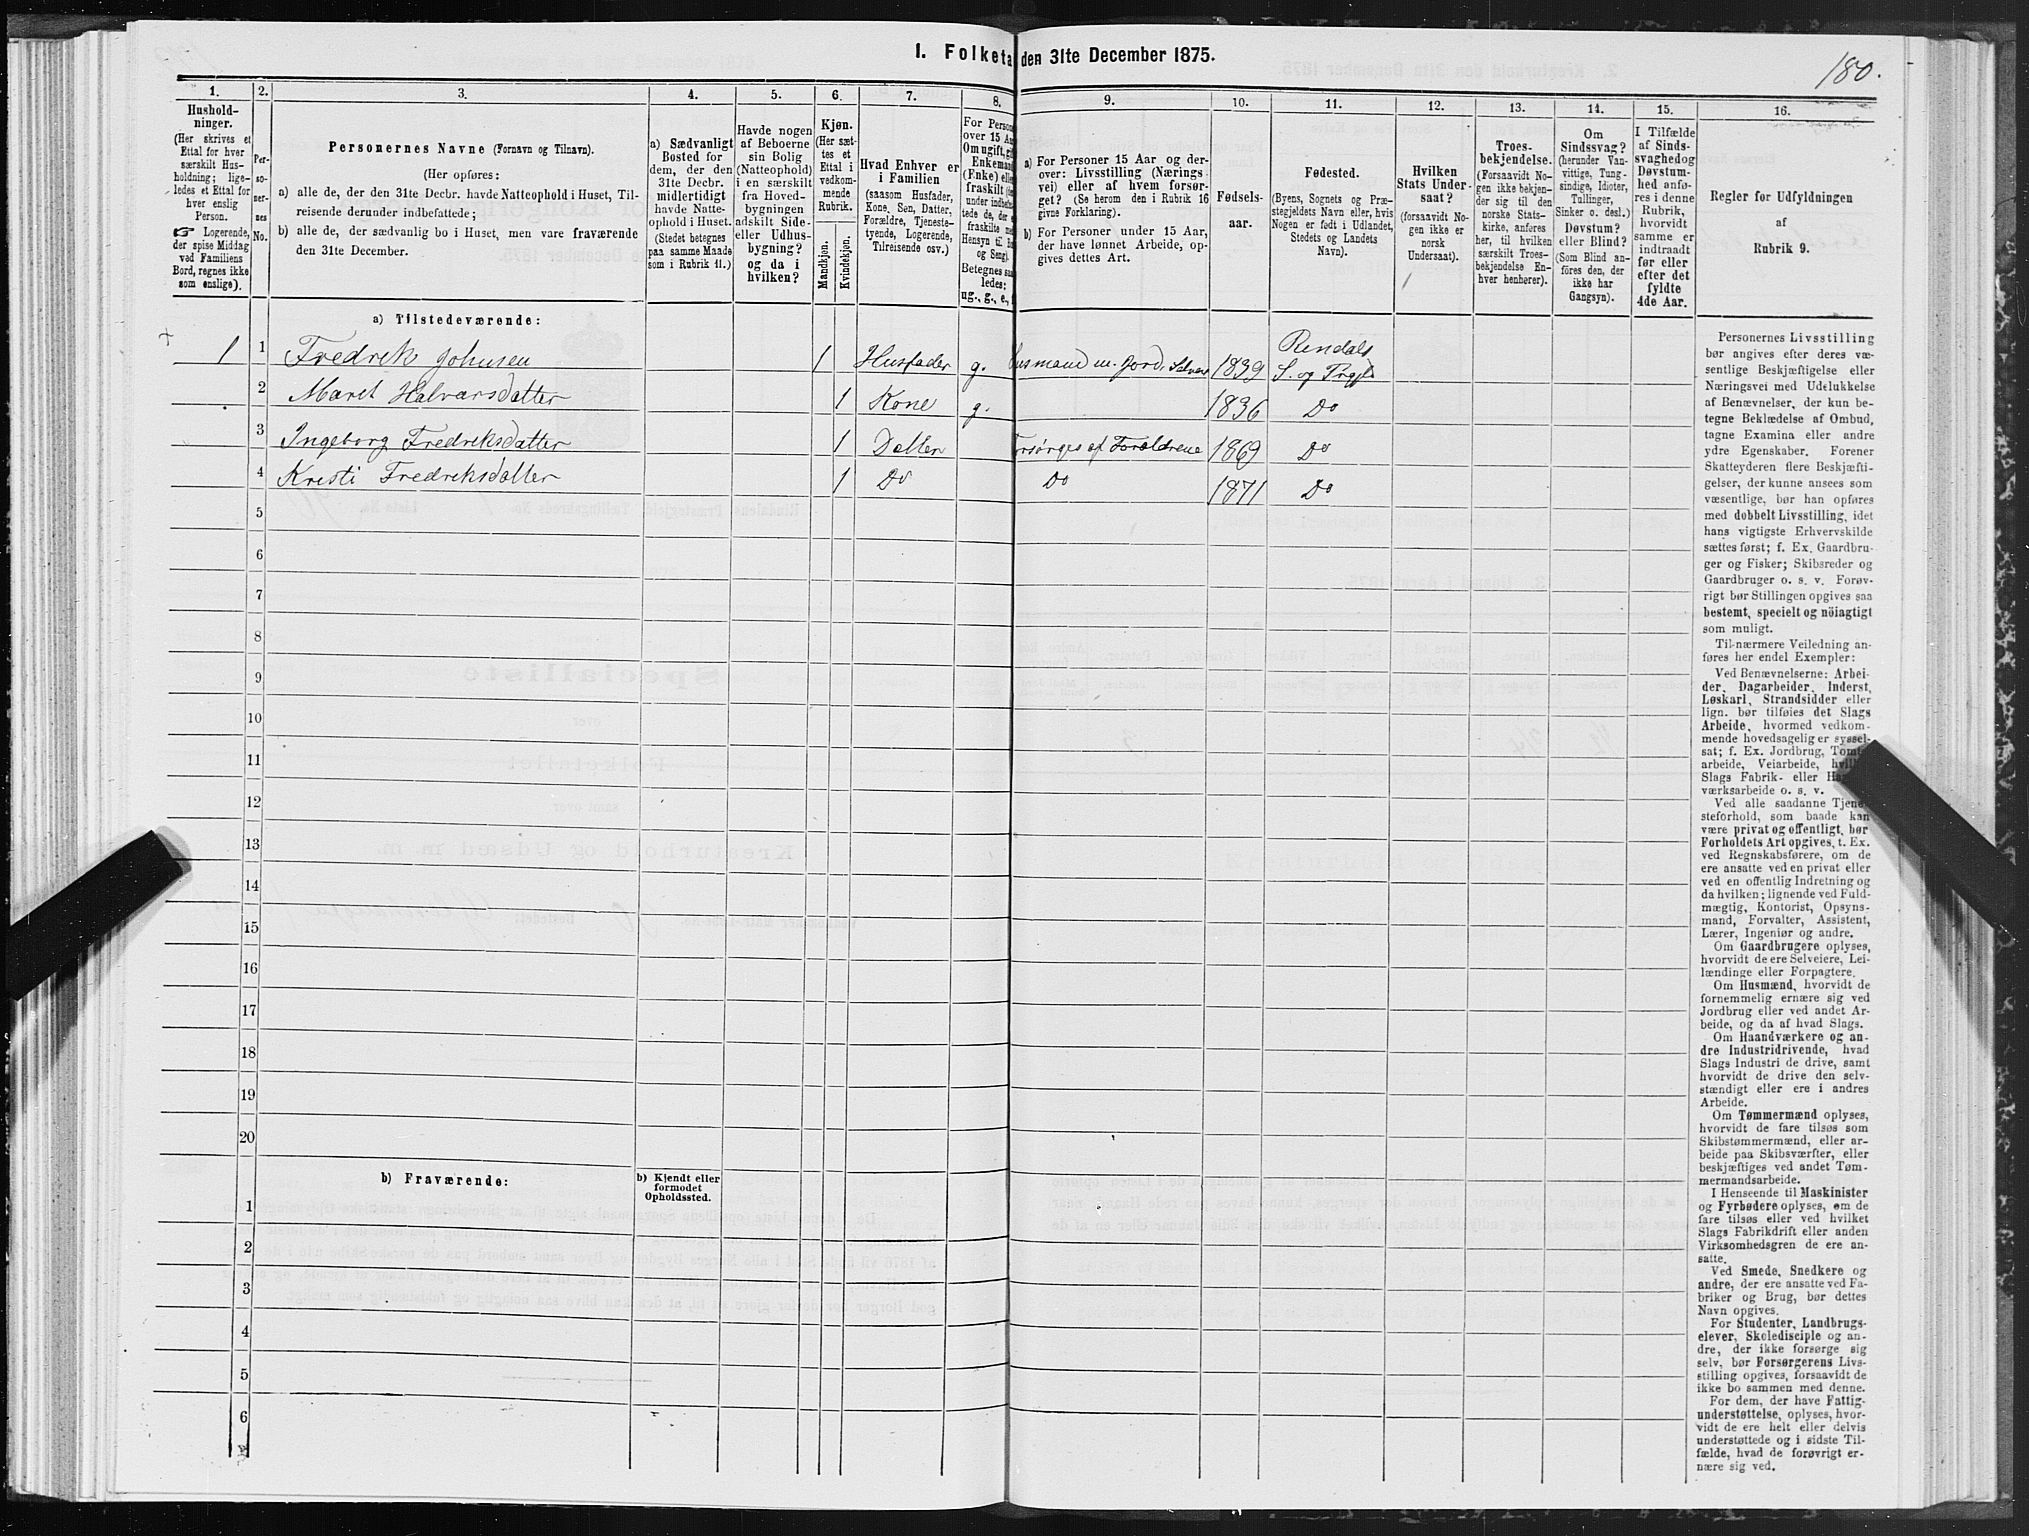 I. Folketa den 31te December 1875.
180.
1.
2.
3.
4.
5.
6.
7.
8.
9.
10.
11.
12.
13.
14.
15.
16.
Hushold-
ninger.
(Her skrives et
Ettal for hver
særskilt Hus-
holdning; lige-
ledes et Ettal for
hver enslig
Person.
☞ Logerende,
der spise Middag
ved Familiens
Bord, regnes ikke
som enslige).
Per-
so-
ner-
nes
No.
Personernes Navne (Fornavn og Tilnavn).
(Her opføres:
a) alle de, der den 31te Decbr. havde Natteophold i Huset, Til-
reisende derunder indbefattede;
b) alle de, der sædvanlig bo i Huset, men vare fraværende
den 31te December.
a) Sædvanligt
Bosted for
dem, der den
31te Decbr.
midlertidigt
havde Natte-
ophold i Huset.
(Stedet betegnes
paa samme Maade
som i Rubrik 11.)
Havde nogen
af Beboerne
sin Bolig
(Natteophold)
i en særskilt
fra Hoved-
bygningen
adskilt Side-
eller Udhus-
bygning?
og da i
hvilken?
Kjøn.
(Her sæt-
tes et
Ettal i
vedkom-
mende
Rubrik.
Mandkjøn.
Kvindekjøn.
Hvad Enhver er
i Familien
(saasom Husfader,
Kone, Søn, Datter,
Forældre, Tjeneste-
tyende, Logerende,
Tilreisende osv.)
For Person
over 15 Aa
Om ugift, gi
Enkeman
(Enke) elle
fraskilt
under indbe
tede de, der
fraskilte
Hensyn til
og Seng).
Betegnes saa
ledes:
ug., g., e.,
a) For Personer 15 Aar og der-
over: Livsstilling (Nærings
vei) eller af hvem forsør-
get? (Se herom den i Rubrik 16
givne Forklaring).
b) For Personer under 15 Aar,
der have lønnet Arbeide, op-
gives dettes Art.
Fødsels-
aar.
Fødested.
(Byens, Sognets og Præ-
stegjeldets Navn eller, hvis
Nogen er født i Udlandet,
Stedets og Landets
Navn).
Hvilken
Stats Under-
saat?
(forsaavidt No-
gen ikke er
norsk
Undersaat).
Troes-
bekjendelse.
(Forsaavidt No-
gen ikke bekjen-
der sig til den
norske Stats-
kirke, anføres
her, til hvilken
særskilt Troes-
bekjendelse En-
hver henhører).
Om
Sindssvag?
(herunder Van-
vittige, Tung-
sindige, Idioter,
Tullinger,
Sinker o. desl.)
Døvstum?
eller Blind?
(Som Blind an-
føres den, der
ikke har
Gangsyn).
I Tilfælde
af Sinds-
svaghedog
Døvstum-
hed anfø-
res i denne
Rubrik,
hvorvidt
samme er
indtraadt
før eller
efter det
fyldte
4de Aar.
Regler for Udfyldningen
af
Rubrik 9.
a) Tilstedeværende:
1 1 Fredrik Johnsen 1 Husfader g. usmand m. Jord, Selveier 1839 Rendals
S. og Prgjld
2 Maret Halvarsdatter 1 Kone g. 1836 Do
3 Ingeborg Fredriksdatter 1 Datter orsørges af Forældrene 1869 Do
4 Kresti Fredriksdatter 1 Do Do 1871 Do
5
6
7
8
9
10
11
12
13
14
15
16
17
18
19
20
b) Fraværende:
b) Kjendt eller
formodet
Opholdssted.
1
2
3
4
5
6
Personernes Livsstilling
bør angives efter deres væ-
sentlige Beskjæftigelse eller
Næringsvei med Udelukkelse
af Benævnelser, der kun be-
tegne Beklædelse af Ombud,
tagne Examina eller andre
ydre Egenskaber. Forener
Skatteyderen flere Beskjæfti-
gelser, der kunne ansees som
væsentlige, bør han opføres
med dobbelt Livsstilling, idet
hans vigtigste Erhvervskilde
sættes først; f. Ex. Gaardbru-
ger og Fisker; Skibsreder og
Gaardbruger o. s. v. Forøv-
rigt bør Stillingen opgives saa
bestemt, specielt og nöiagtigt
som muligt.
Til nærmere Veiledning an-
føres her endel Exempler:
Ved Benævnelserne: Arbei-
der, Dagarbeider, Inderst,
Løskarl, Strandsidder eller
lign. bør tilføies det Slags
Arbeide, hvormed vedkom-
mende hovedsagelig er syssel-
sat; f. Ex. Jordbrug, Tomte-
arbeide, Veiarbeide, hvilket
Slags Fabrik- eller Haand-
værksarbeide o. s. v.
Ved alle saadanne Tjene-
steforhold, som baade kan
være privat og offentligt, bør
Forholdets Art opgives, t. Ex.
ved Regnskabsførere, om de
ere ansatte ved en privat eller
ved en offentlig Indretning og
da hvilken; lignende ved Fuld-
mægtig, Kontorist, Opsyns-
mand, Forvalter, Assistent,
Lærer, Ingeniør og andre.
Om Gaardbrugere oplyses,
hvorvidt de ere Selveiere, Lei-
lændinge eller Forpagtere.
Om Husmænd, hvorvidt de
fornemmelig ernære sig ved
Jordbrug eller ved andet Ar-
beide, og da af hvad Slags.
Om Haandværkere og an-
dre Industridrivende, hvad
Slags Industri de drive, samt
hvorvidt de drive den selv-
stændigt eller ere i andres
Arbeide.
Om Tømmermænd oplyses,
hvorvidt de fare tilsøs som
Skibstømmermænd, eller ar-
beide paa Skibsværfter, eller
beskjæftiges ved andet Tøm-
mermandsarbeide.
I Henseende til Maskinister
og Fyrbødere oplyses, om de
fare tilsøs eller ved hvilket
Slags Fabrikdrift eller anden
Virksomhedsgren de ere an-
satte.
Ved Smede, Snedkere og
andre, der ere ansatte ved Fa-
briker og Brug, bør dettes
Navn opgives.
For Studenter, Landbrugs-
elever, Skoledisciple og an-
dre, der ikke forsørge sig
selv, bør Forsørgerens Livs-
stilling opgives, forsaavidt de
ikke bo sammen med denne.
For dem, der have Fattig-
understøttelse, oplyses, hvor-
vidt de ere helt eller delvis
understøttede og i sidste Til-
fælde, hvad de forøvrigt er-
nære sig ved.